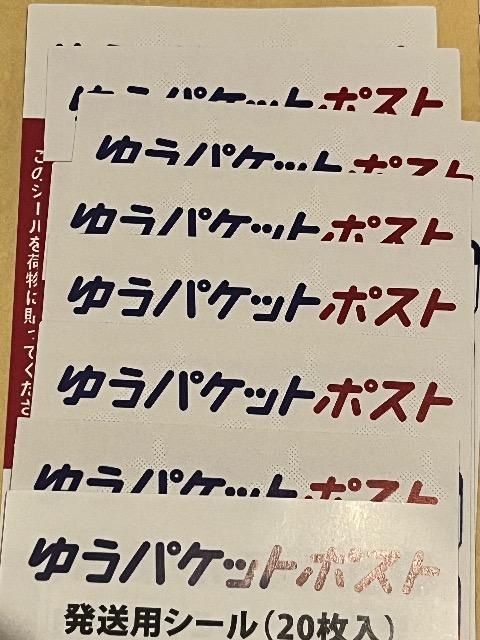 ゆうパケットポスト
ゆうパケットポスト
ゆうパケットポスト
ゆうパケットポスト
ゆうパケットポスト
ゆうパケットポスト
ゆうパケットポスト
発送用シール(20枚入)
このシールを荷物に貼ってくださ